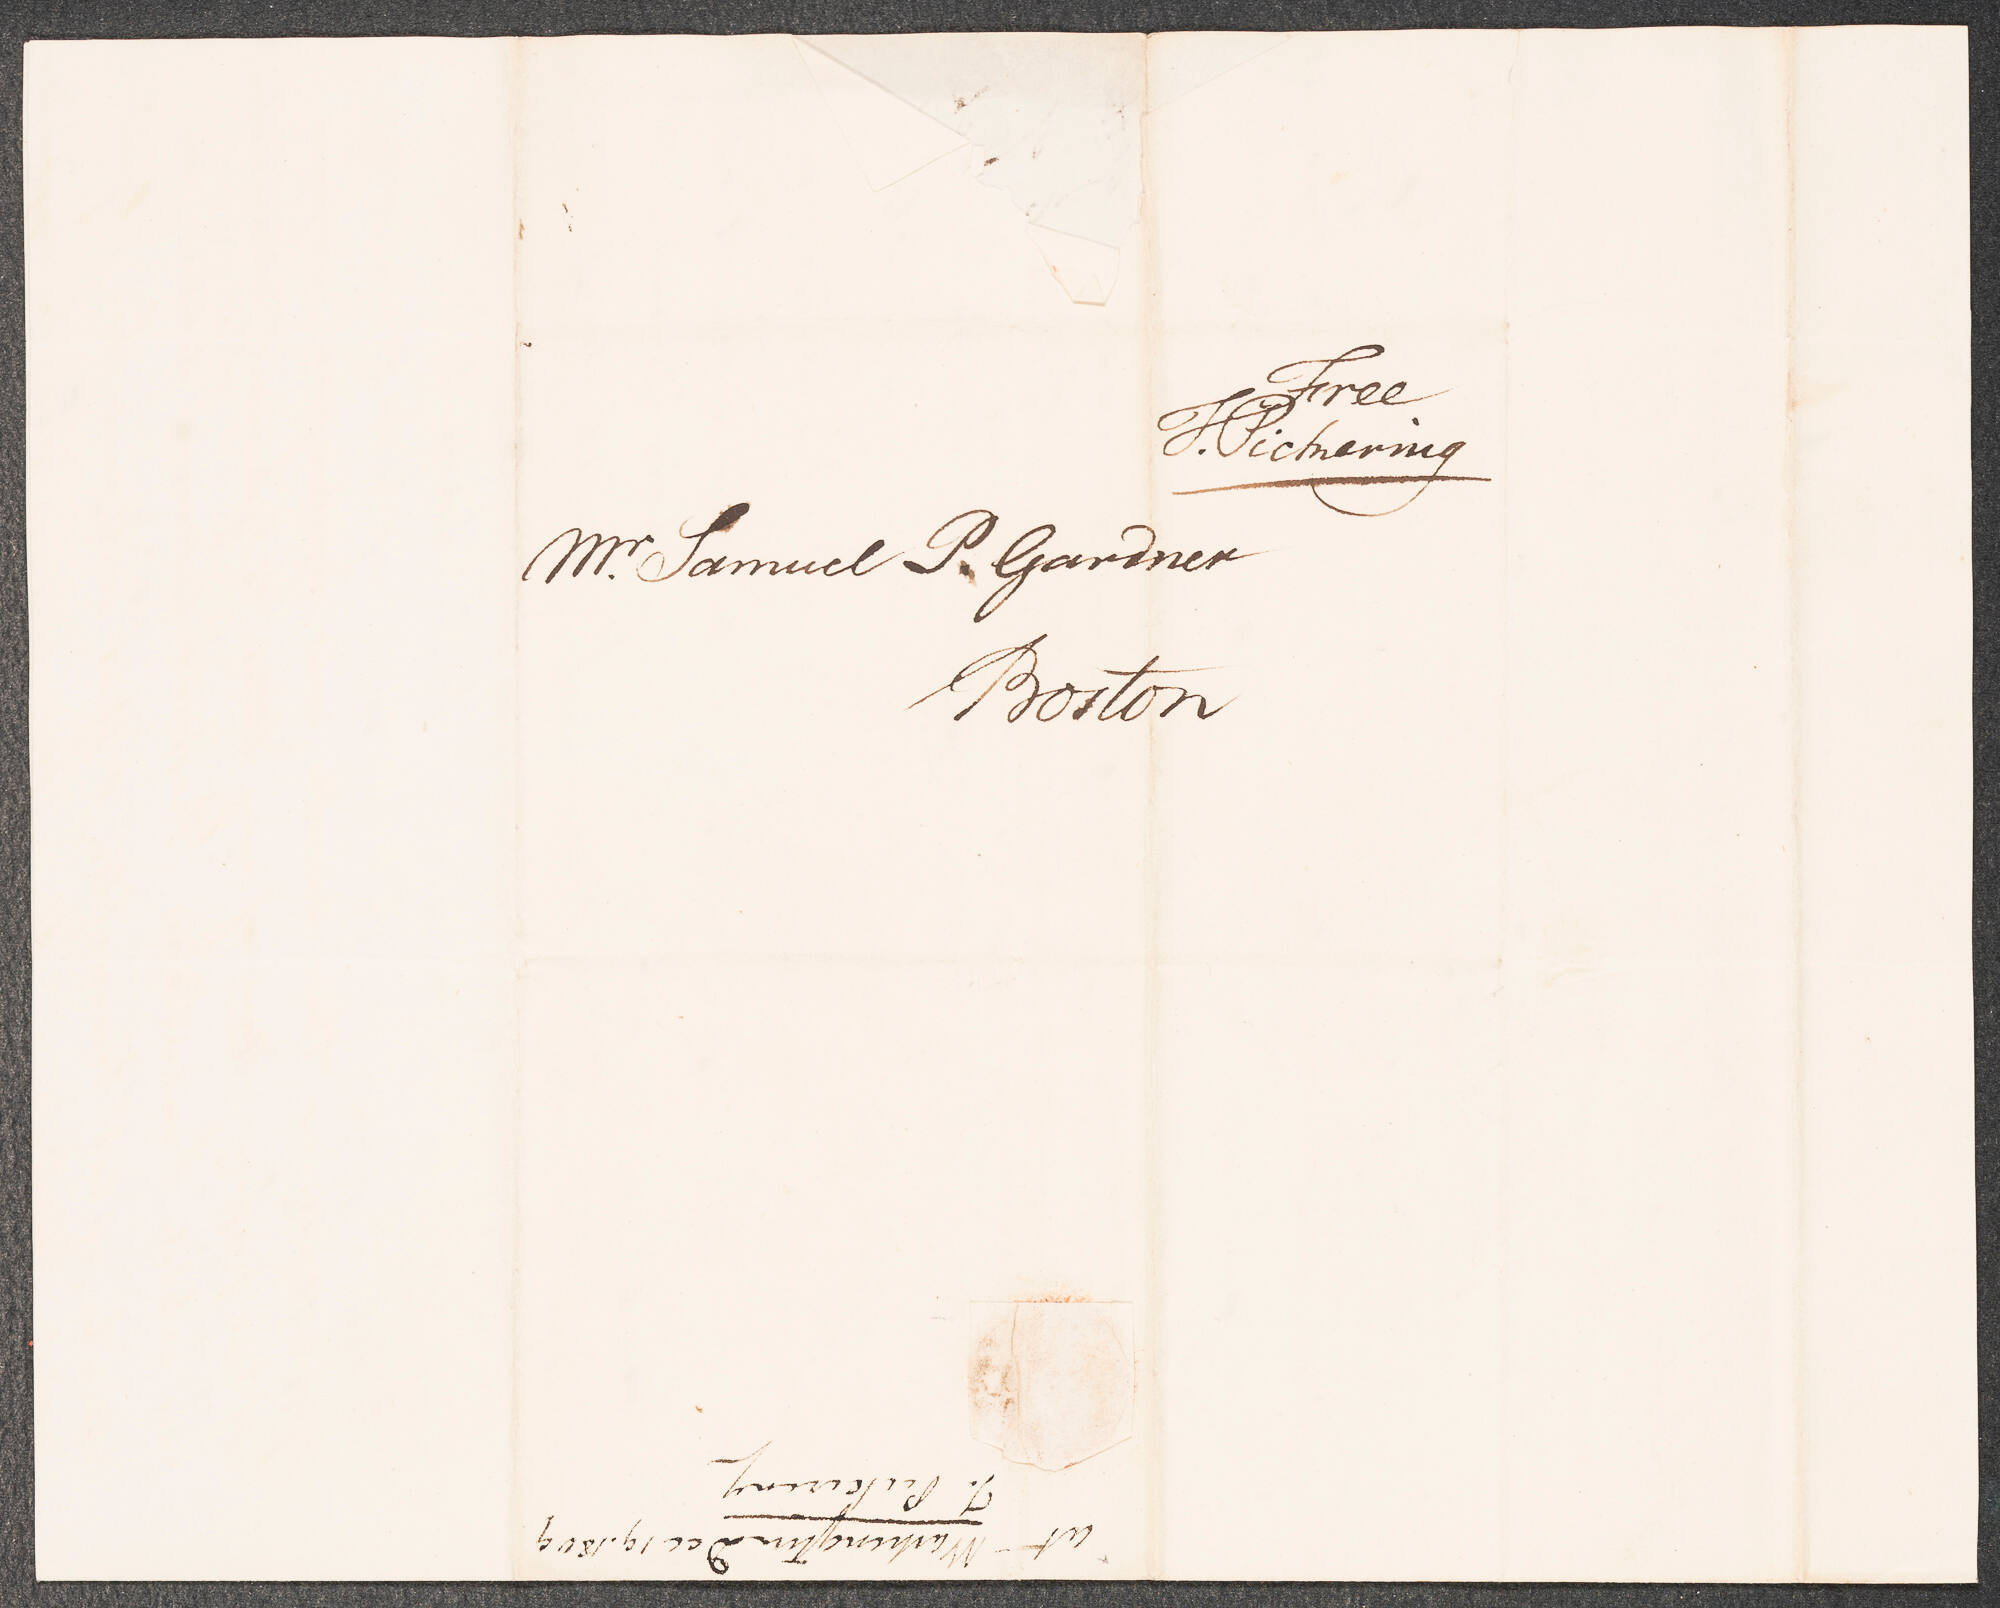 Free
T. Pickering
Mr. Samuel P. Gardner
Boston
at Washington Dec 19. 1809
T. Pickering